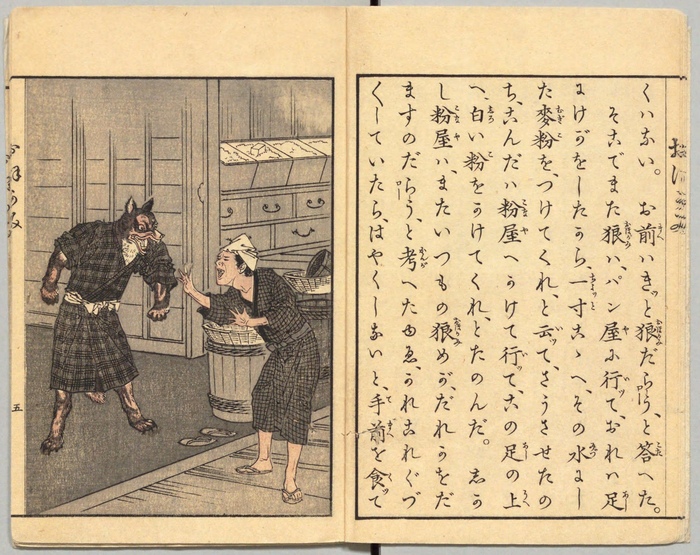 くハない。 お前ハきッと狼だらう、と答へた。
そこでまた狼ハ、パン屋に行ッて、おれハ足
にけがをしたから、一寸こゝへ、その水にし
た麥粉を、つけてくれ、と云ッて、さうさせたの
ち、こんだハ粉屋へかけて行ッて、この足の上
へ、白い粉をかけてくれ、とたのんだ。 しか
し粉屋ハ、またいつもの狼めが、だれかをだ
ますのだらう、と考へたゆゑ、かれこれぐづ
くしていたら、はやくしないと、手前を食ッて
五